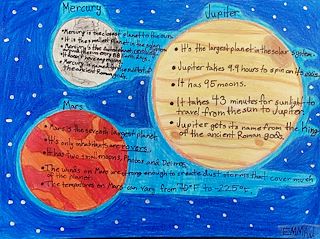 Mercury
•Mercury is the closest planet to the sun.
•It is the smallest planet in the solar
Jupiter
• It's the largest planet in the solar system.
• Jupiter takes 9.9 hours to spin on its axis.
• It has 95 moons.
• It takes 43 minutes for sunlight to
travel from the sun to Jupiter.
• Jupiter gets its name from the king
of the ancient Roman gods.
Mars
•Mars is the seventh largest planet.
•It's only inhabitants are rovers.
•It has two small moons, Phobos and Deimos.
•The winds on Mars are strong enough to create dust storms that cover much
of the planet.
•The temperatures on Mars can vary from 70°F to -225°F.
EMMA